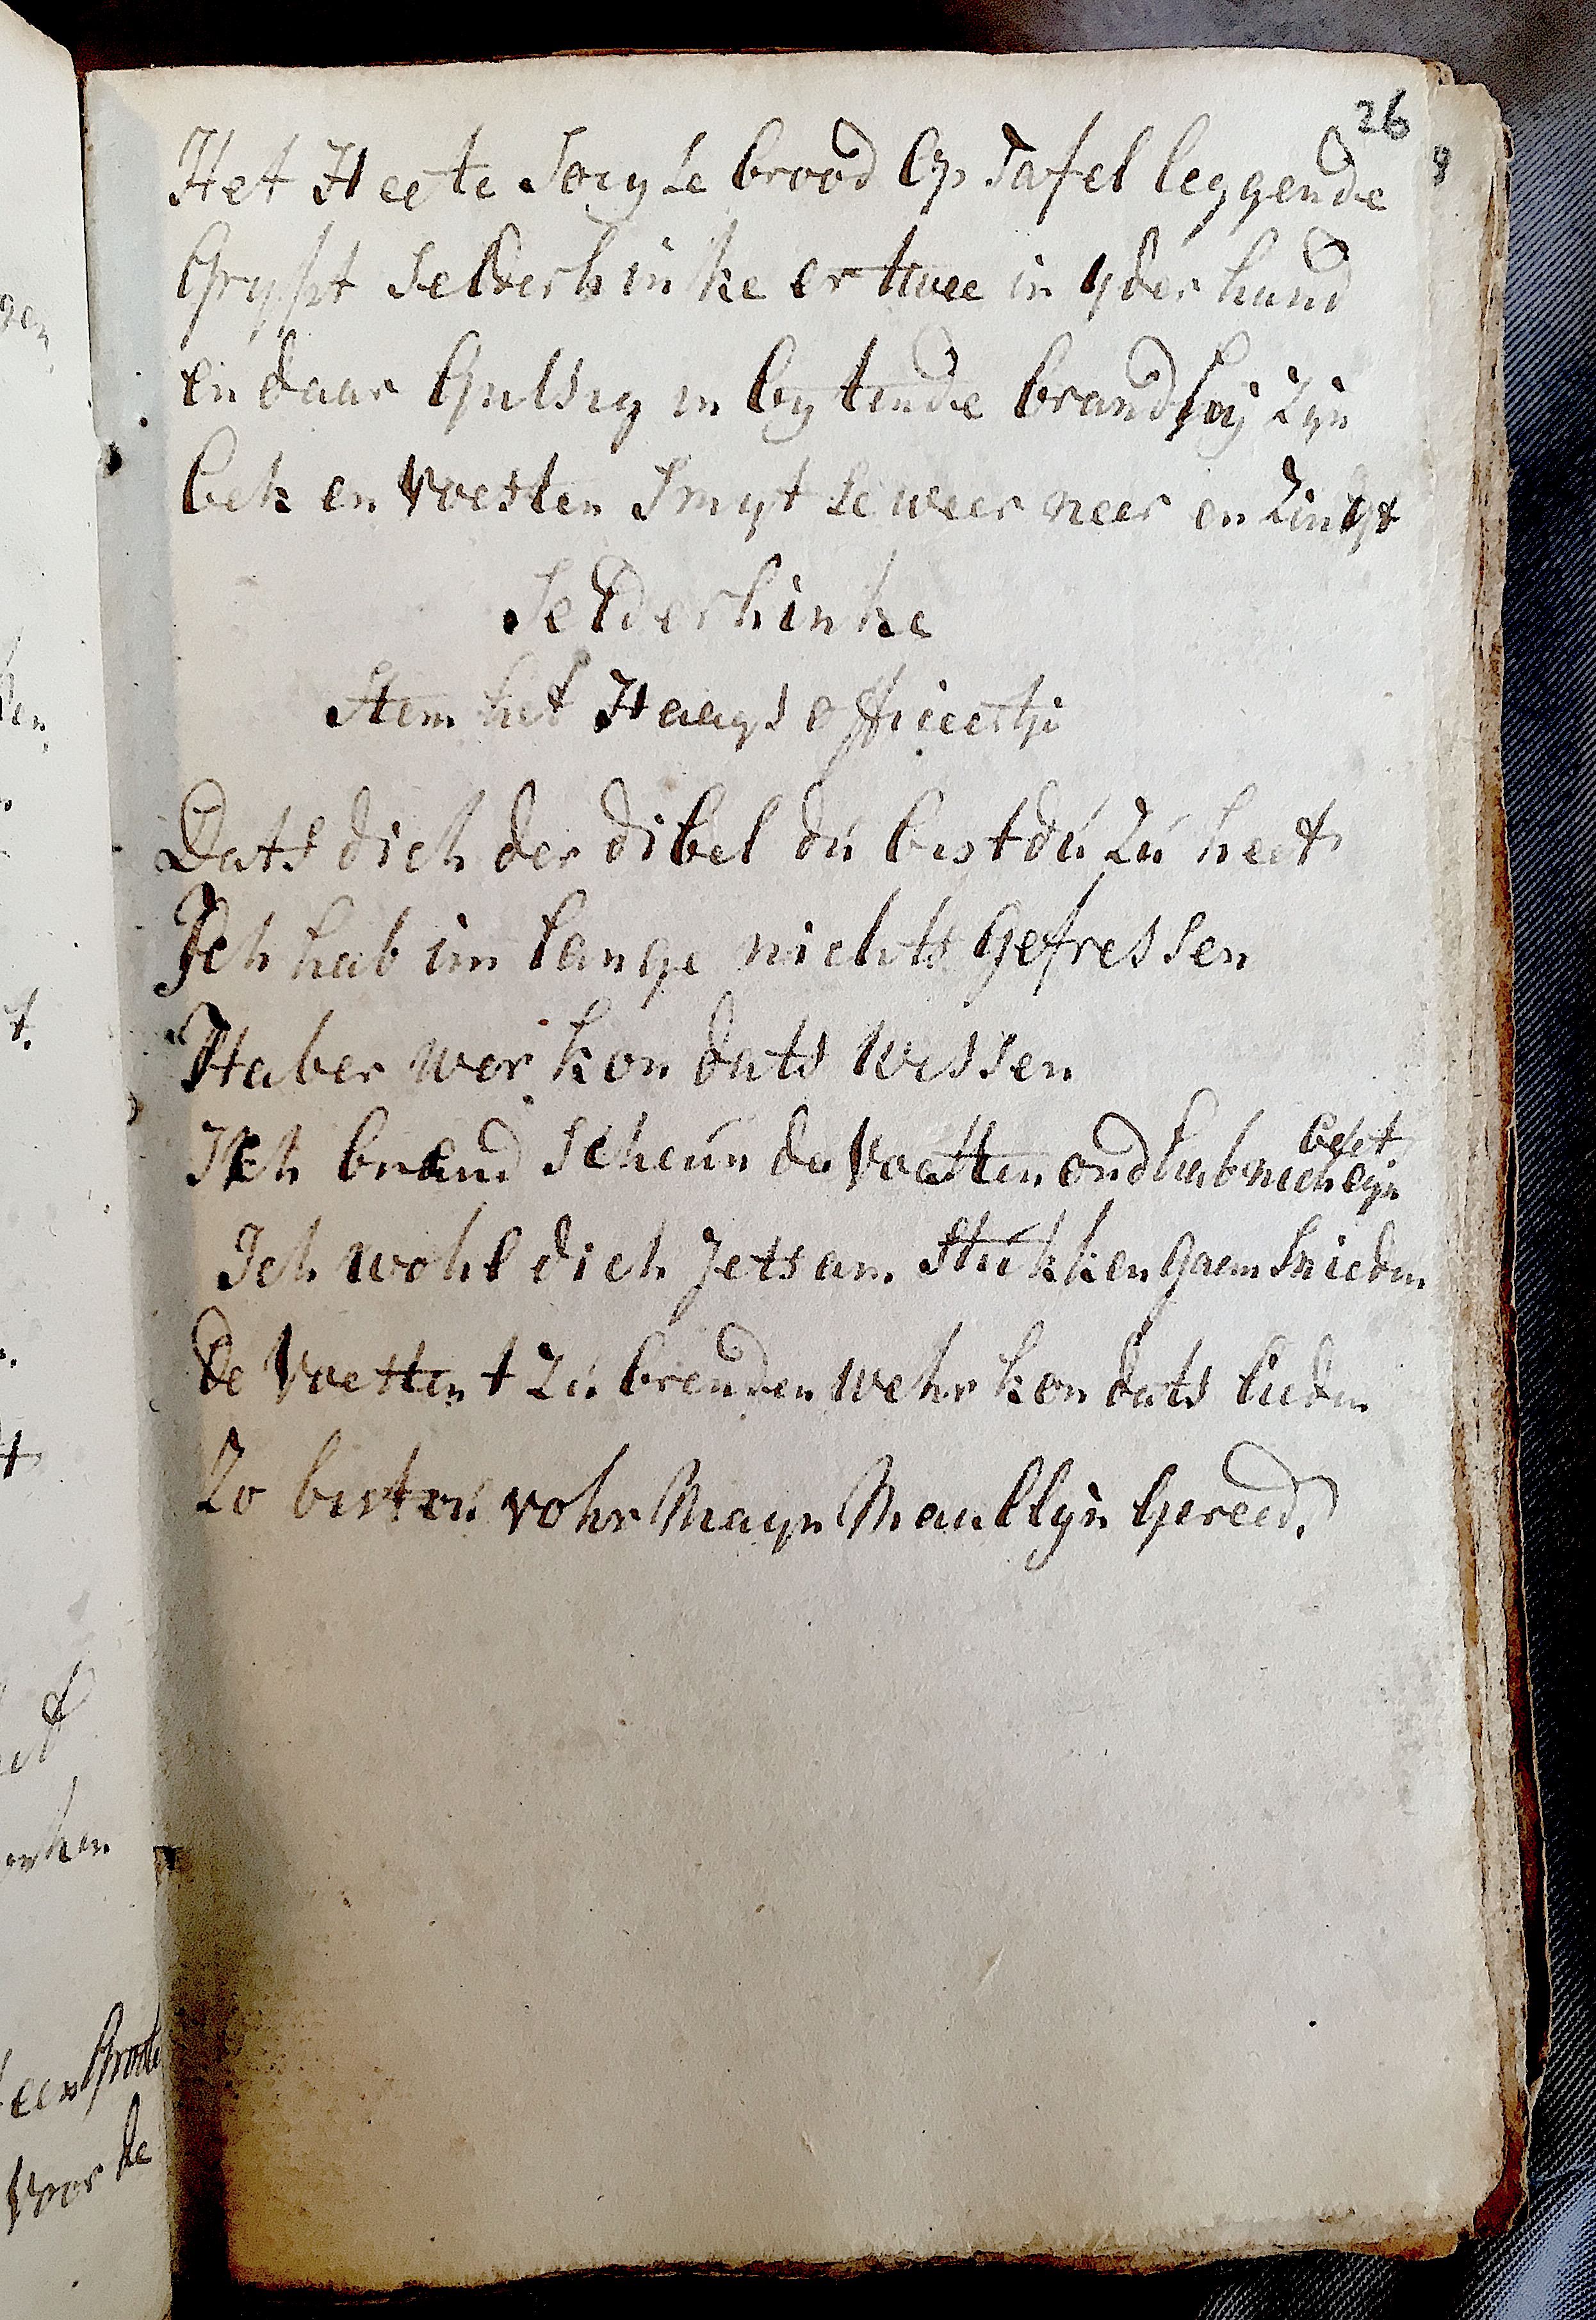 26
Het Heete Soryse brood Op Tafel leggende
Grypt Selderhinke er twee in yder hand
en daar Gulsig in bytende brand hij Zyn
bek en Voetten Smyt se weer neer en Zingt
Selderhinke
Stem het Haags officeertje
Dats dich der dibel du best du Zu heet
Ich hab im lange nichts Gefressen
Haber wer kon dats wissen
Ich brand scheun de Voetten ond hab nich eyn
beet
Ich wohl dich Jets an Stukken gaen snieden
De Voetten t Zu brenden wehr kon dats lieden
Zo bistou vohr Mayn Maullyn Gereed.